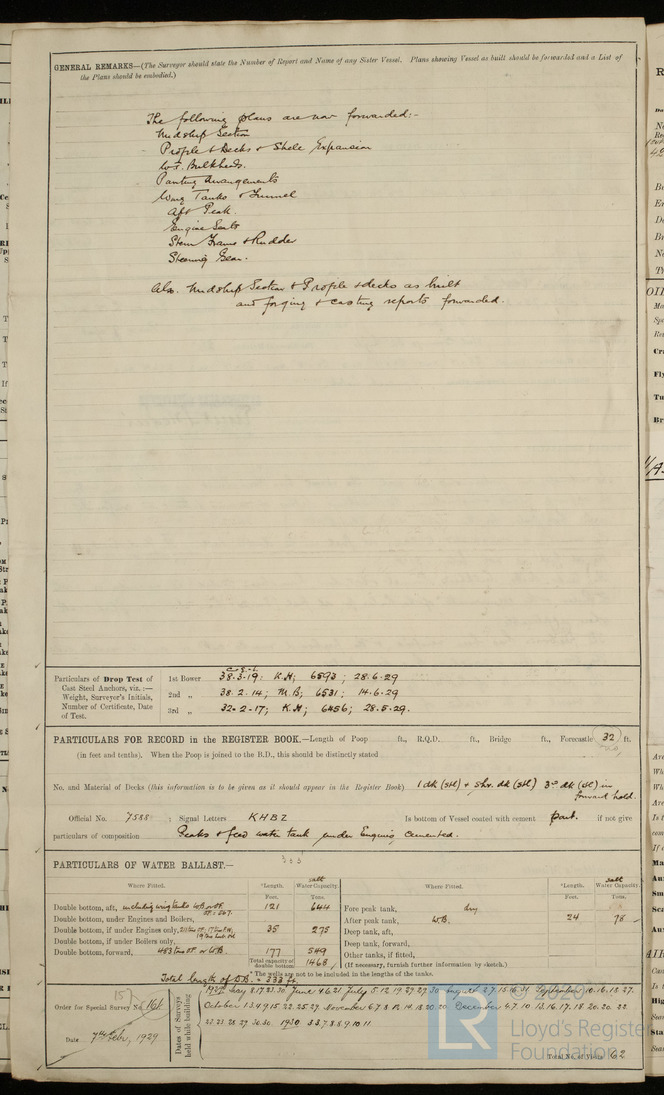 GENERAL REMARKS—(The Surveyor should state the Number of Report and Name of any Sister Vessel. Plans showing Vessel as built should be forwarded and a List of
the Plans should be embodied.)
The following plans are now forwarded:-
Midship Section
Profile & Decks & Shell Expansion
W.T. Bulkheads.
Panting Arrangements
Wing Tanks & Tunnel
Aft Peak.
Engine Seats
Stern Frame & Rudder
Steering Gear.
Also. Midship Section & Profile & decks as built
and forging & casting reports forwarded.
Particulars of Drop Test of
Cast Steel Anchors, viz.:—
Weight, Surveyor's Initials,
Number of Certificate, Date
of Test.
1st Bower 38.3.19: K.H; 6593; 28.6.29
2nd „ 38.2.14; M.B; 6531; 14.6.29
3rd „ 32.2.17; K.H; 6456; 28.5.29.
PARTICULARS FOR RECORD in the REGISTER BOOK.—Length of Poop ft., R.Q.D. ft., Bridge ft., Forecastle 32 ft.
(in feet and tenths). When the Poop is joined to the B.D., this should be distinctly stated
No. and Material of Decks (this information is to be given as it should appear in the Register Book) 1 dk (stl) + shr. dk (stl) 3rd dk (stl) in
forward hold.
Official No. 7588 ; Signal Letters KHBZ Is bottom of Vessel coated with cement part. if not give
particulars of composition Peaks & feed water tank under Engines, cemented.
PARTICULARS OF WATER BALLAST.—
333
Where Fitted. *Length. Water Capacity. Where Fitted. *Length. Water Capacity.
Feet. Tons. Feet. Tons.
Double bottom, aft, including wing tanks 121 644 Fore peak tank, dry
Double bottom, under Engines and Boilers, After peak tank, W.B. 24 78
Double bottom, if under Engines only, 35 275 Deep tank, aft,
Double bottom, if under Boilers only, Deep tank, forward,
Double bottom, forward, 177 549 Other tanks, if fitted,
Total capacity of
double bottom 1468 (If necessary, furnish further information by sketch.)
* The wells are not to be included in the lengths of the tanks.
Total length of D.B. = 333 ft.
Order for Special Survey No. 161
Date 7th Feby, 1929
Dates of Surveys
held while building
October 1.3.4.9.15.22.25.27. November 6.7.8.12.14.18.20.20. December 4.7.10.13.16.17.18.20.20.22.
1930 3.3.7.8.8.9.10.11
Total No. of Visits 62
© 2020
LR
Lloyd's Register
Foundation